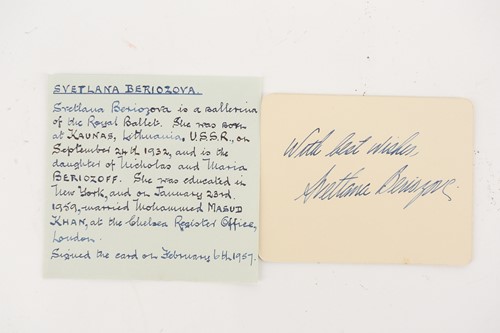 SVETLANA BERIOZOVA.
Svetlana Beriozova is a ballerina
of the Royal Ballet. She was born
at KAUNAS, Lithuania, U.S.S.R., on
September 24th, 1932, and is the
daughter of Nicholas and Maria
BERIOZOFF. She was educated in
New York, and on January 23rd.
1959, married Mohammed MASUD
KHAN, at the Chelsea Register Office,
London.
Signed the card on February 6th, 1957.
With best wishes
Svetlana Beriozova.